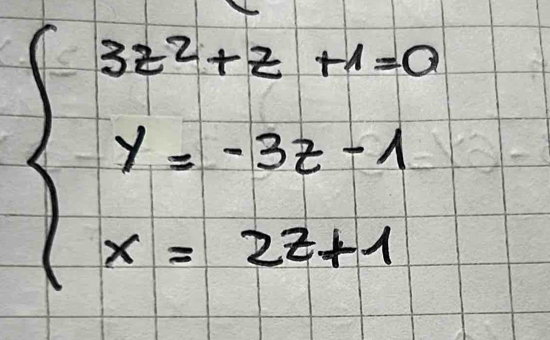 3z²+z +1=0
y = -3z-1
x = 2z+1